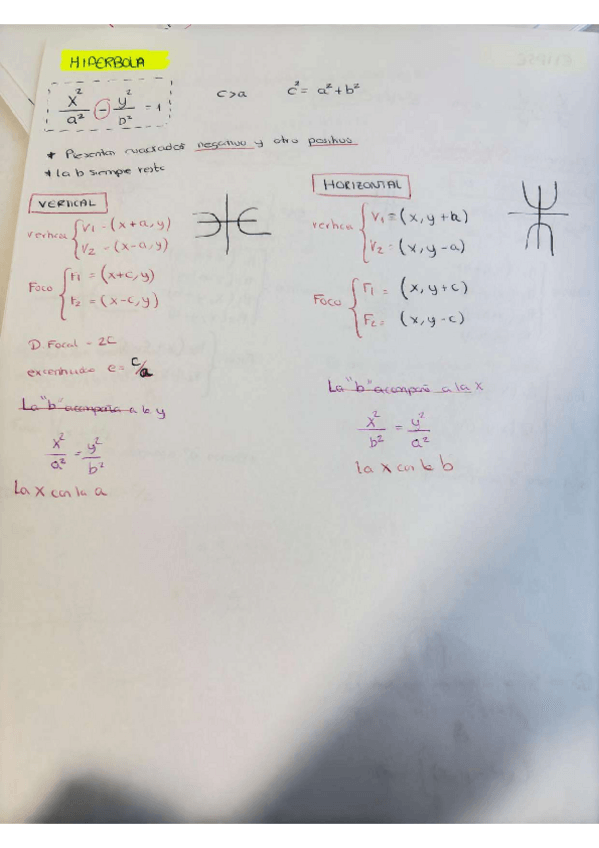 HIPERBOLA
x²/a² - y²/b² = 1
c>a c² = a²+b²
* Presentan cuadrados negativo y otro positivo
* La b siempre resta
VERTICAL
vertica { V1 - (x+a, y)
V2 - (x-a, y)
Foco { F1 = (x+c, y)
F2 = (x-c, y)
D. Focal - 2C
e = c/a
La "b" acompaña a la y
x²/a² = y²/b²
La x con la a
HORIZONTAL
vertica { V1 = (x, y+a)
V2 - (x, y-a)
Foco { F1 = (x, y+c)
F2 = (x, y-c)
La "b" acompaña a la x
x²/b² = y²/a²
La x con la b